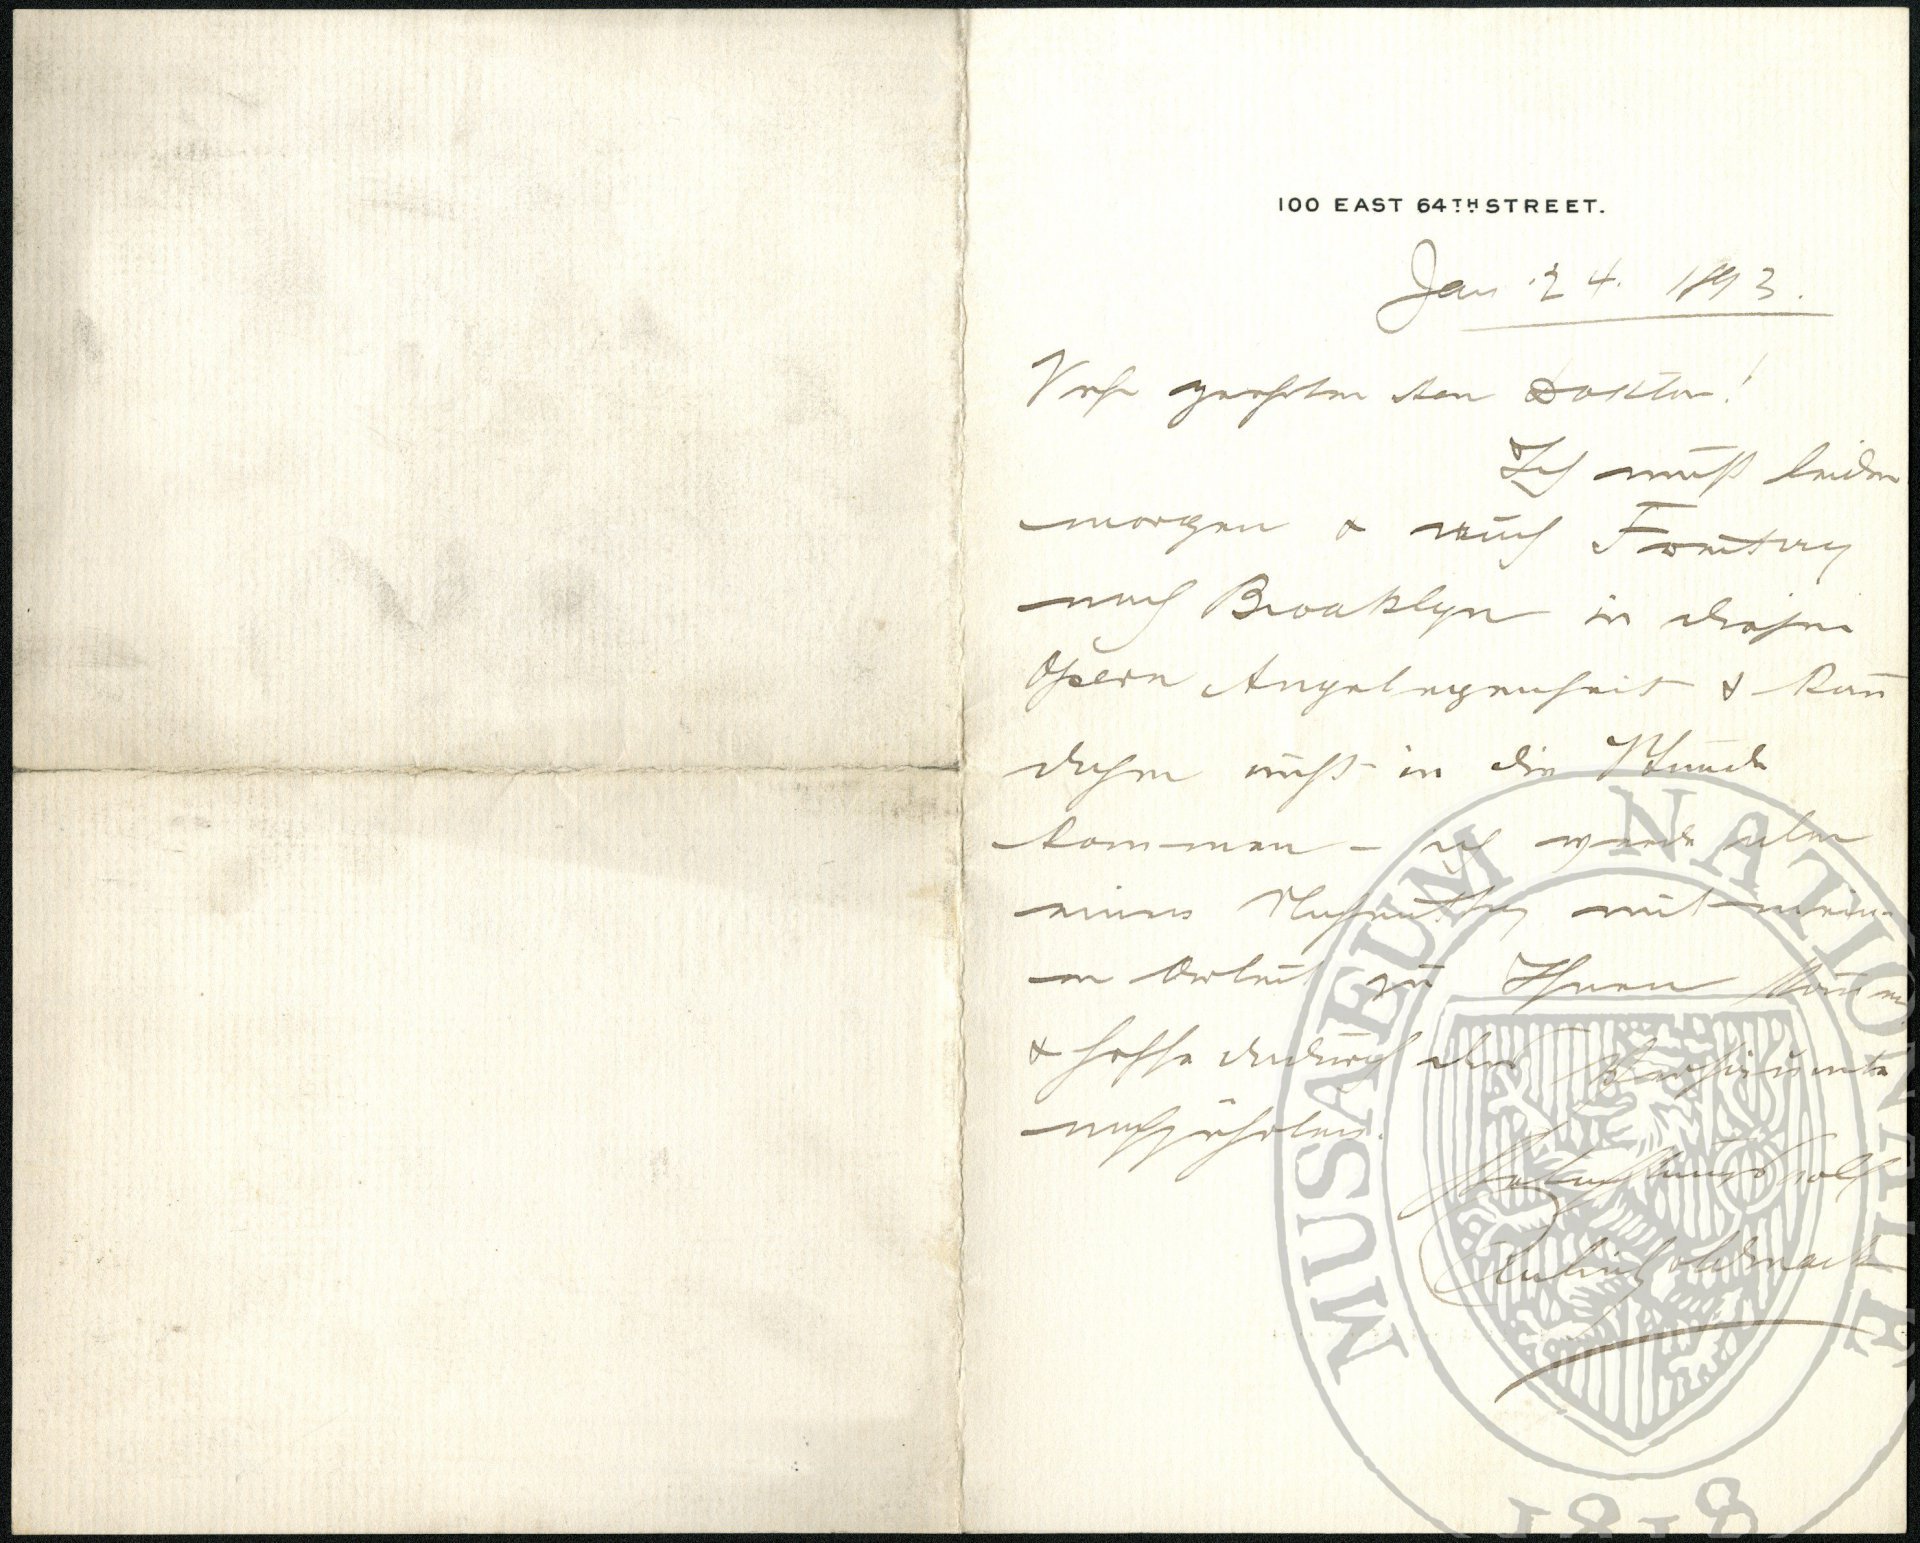 100 EAST 64TH STREET.
Jan. 24. 1893.
Sehr geehrter Herr Doktor!
Ich muß leider
morgen & auch Freitag
nach Brooklyn in dieser
Opern Angelegenheit & kann
daher nicht in die Stunde
kommen – ich werde aber
einen Nachmittag mit mein-
er Arbeit zu Ihnen kommen
& hoffe dadurch das Versäumte
nachzuholen.
Hochachtungsvoll
Rubin Goldmark
MUSAEUM NATIONALE
1818